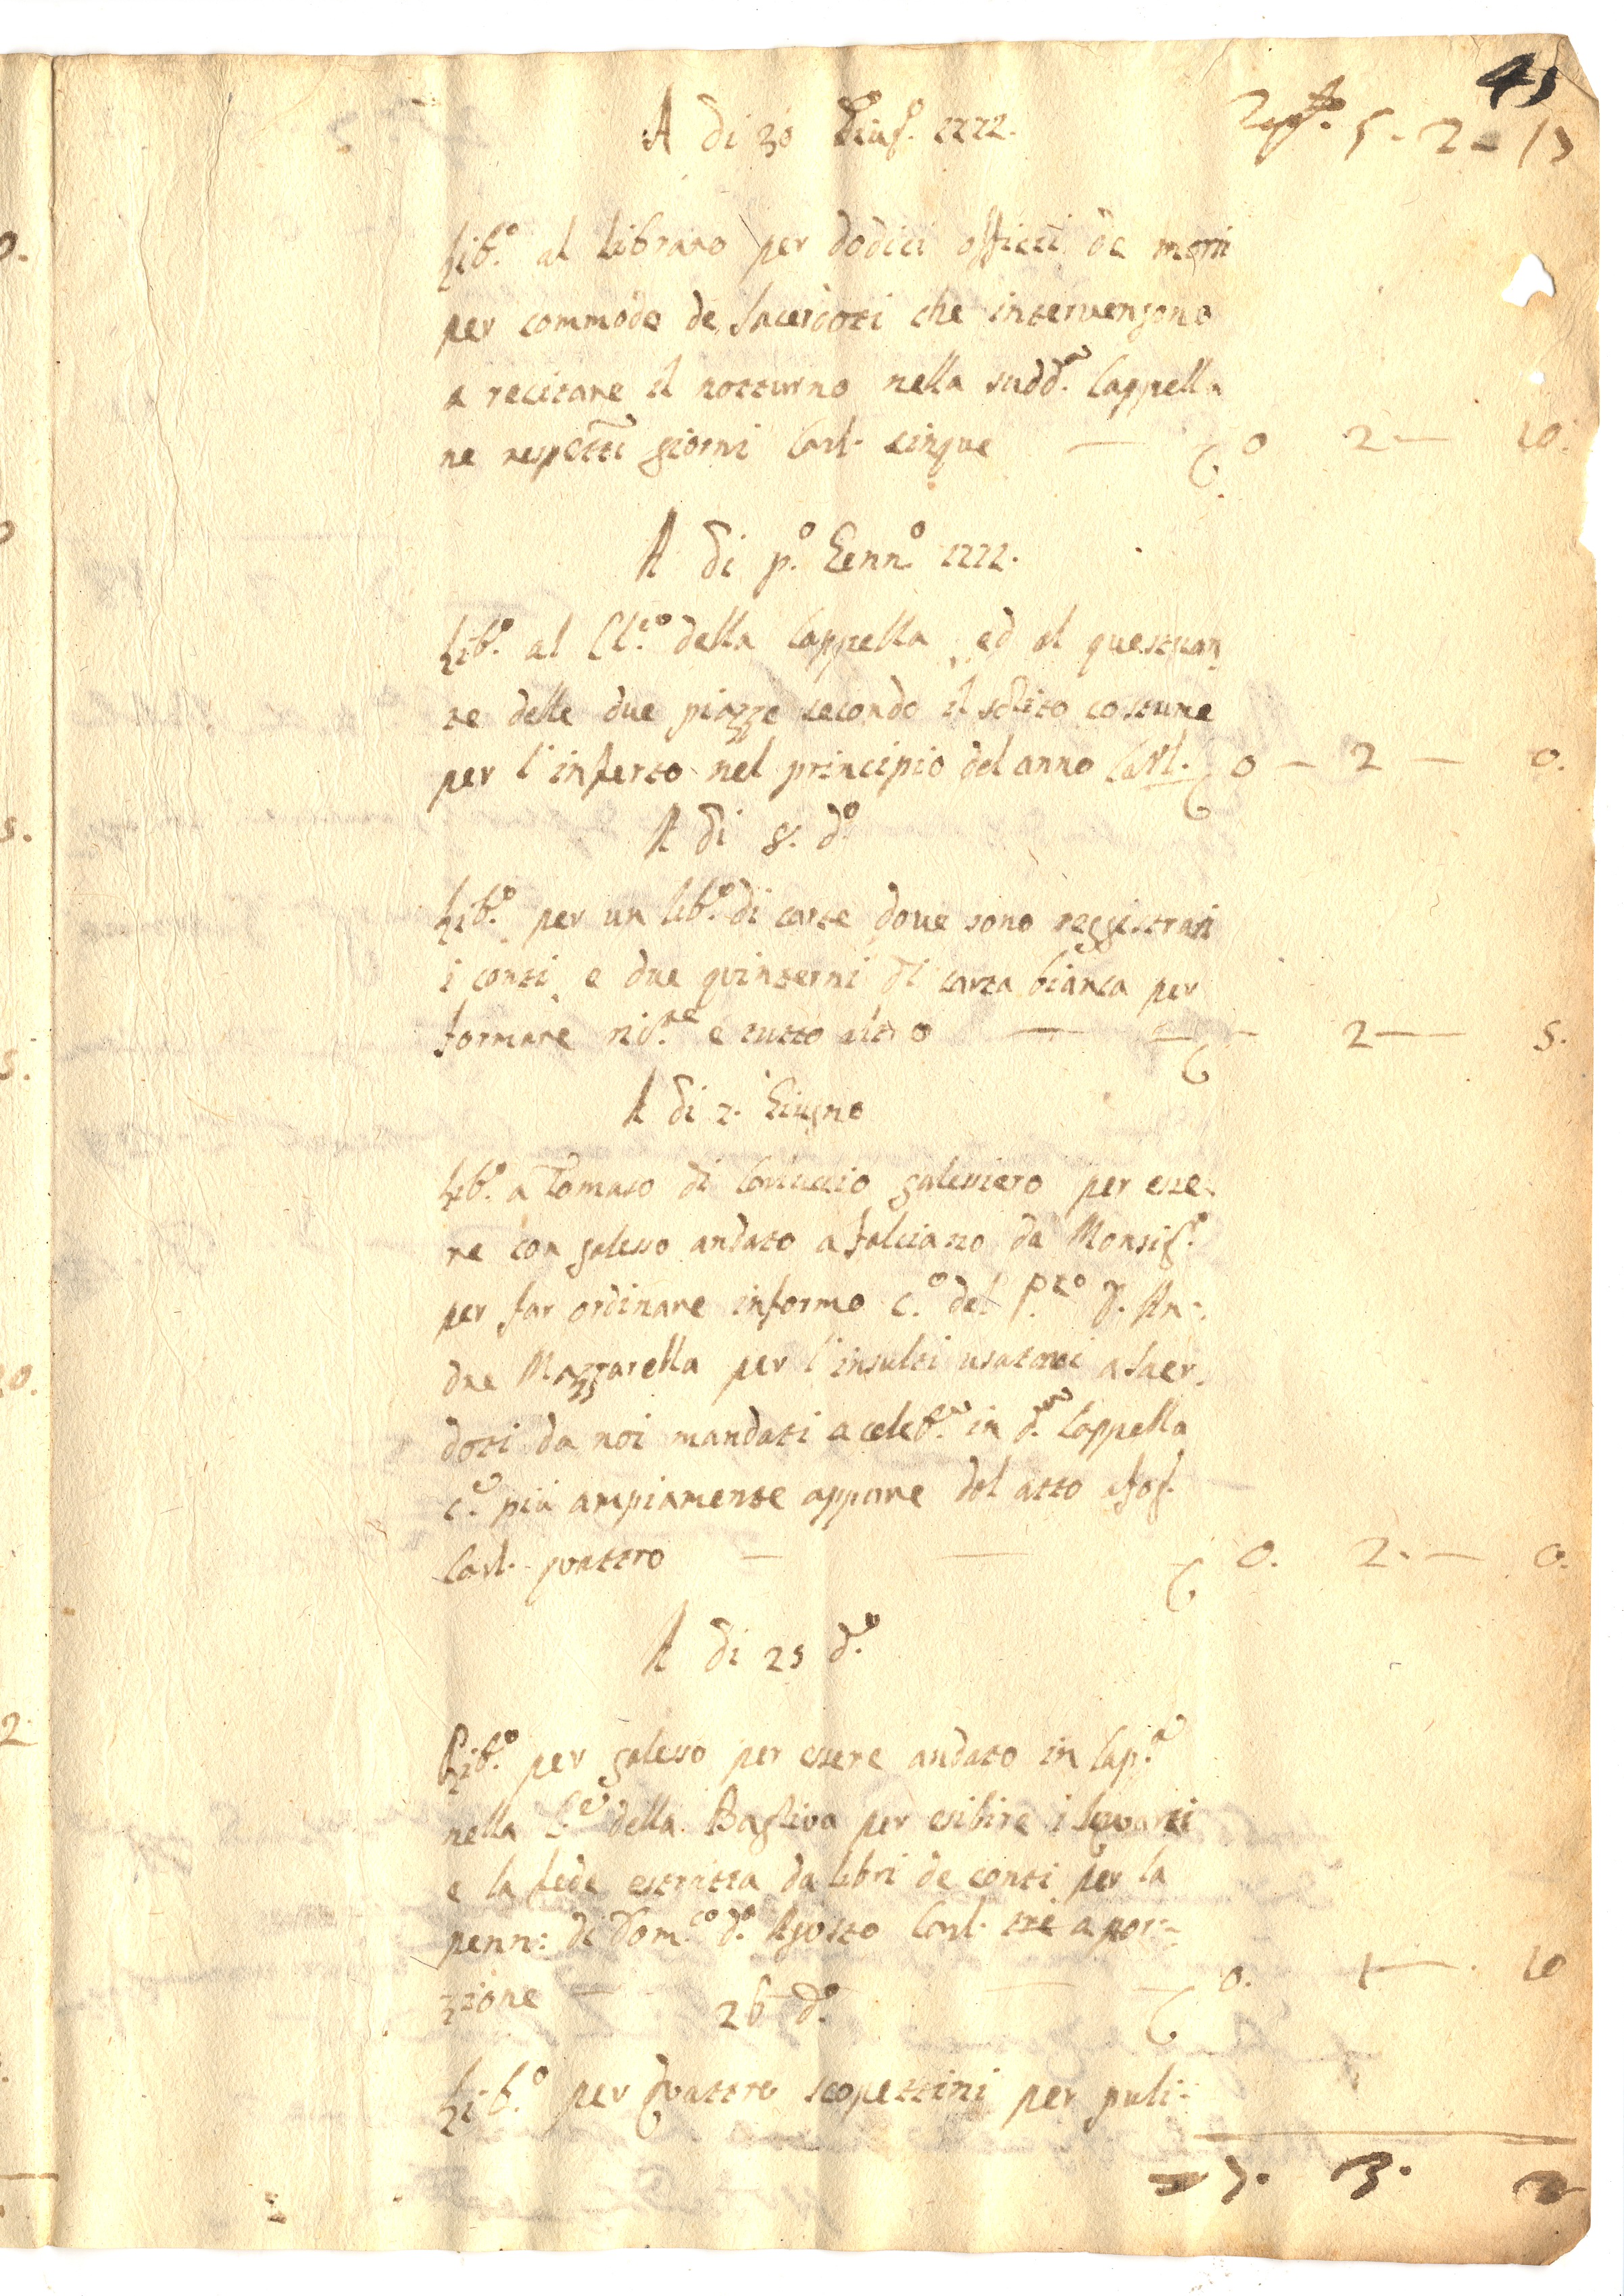 45
A di 30 Giug. 1772.
5 - 2 = 15
Lib.º al Libraro per dodici officii de morti
per commodo de Sacerdoti che intervengono
a recitare il notturno nella sudd.ª Cappella
ne respetti giorni Carl. cinque — 0 2 — 10.
A di p.º Genn.º 1772.
Lib.º al Cl.co della Cappella, ed al questuan
te delle due piazze secondo il solito costume
per l'inferto nel principio del anno Carl. 0 - 2 — 0.
A di 8. d.º
Lib.º per un lib.º di carte dove sono reggistrati
i conti e due quinterni di carta bianca per
formare e tutto altro — — 2 — 5.
A di 2. Giugno
Lib.º a Tomaso di galessiero per esse-
re con galesso andato a Falciano da Monsig.
per far ordinare informo c.º del P.to D. An:
drea Mazzarella per l'insulti usatoni a Sacer.
doti da noi mandati a celeb.re in d.ª Cappella
c.e più ampiamente appare dal atto
Carl. quattro — — 0. 2. — 0.
A di 25 d.º
Lib.º per galesso per essere andato in Cap.ª
nella C.e della Bagliva per esibire i
e la fede estratta da libri de conti per la
penn: di Dom.co d.º Agosto Carl. tre a por=
zione — 0. 1 — 10
26 d.º
Lib.º per quattro scopettini per puli=
7. 3. 2